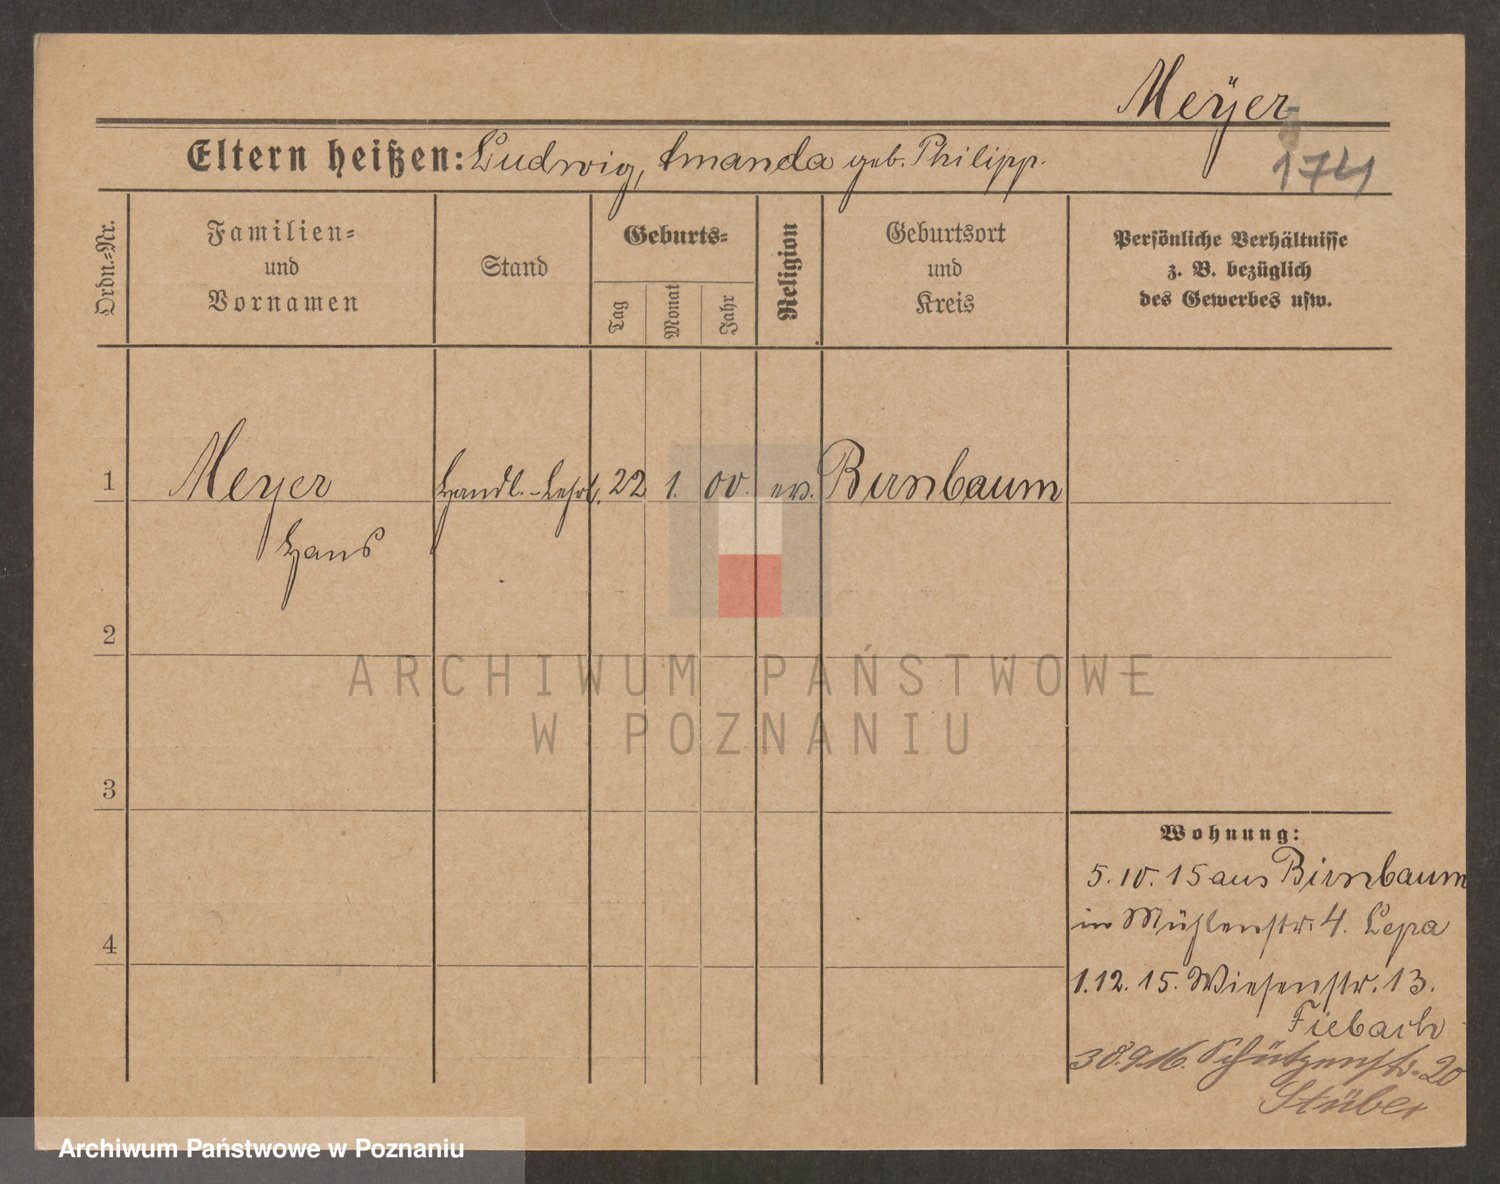 Meÿer
174
Eltern heißen: Ludwig, Amanda geb. Philipp.
Ordn.-Nr.
Familien-
und
Vornamen
Stand
Geburts-
Tag
Monat
Jahr
Religion
Geburtsort
und
Kreis
Persönliche Verhältnisse
z. B. bezüglich
des Gewerbes usw.
1 Meyer Handl.-Lehrl. 22 1. 00. ev. Birnbaum
Hans
2
3
4
Wohnung:
5.10.15 aus Birnbaum
in Mühlenstr. 4. Lepa
1.12.15. Wiesenstr. 13.
Fiebach
30.9.16. Schützenstr. 20
Stüber
ARCHIWUM PAŃSTWOWE
W POZNANIU
Archiwum Państwowe w Poznaniu